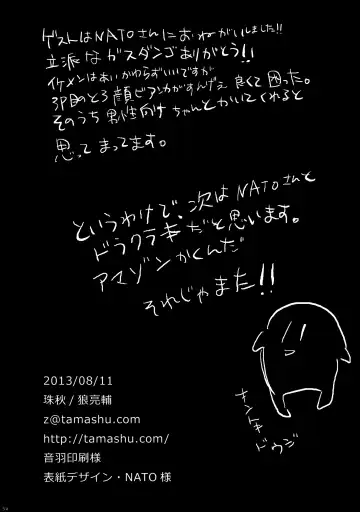 ゲストはNATOさんにおねがいしました!!
立派なガスダンゴありがとう!!
イケメンはあいかわらずいいですが
3P目のとろ顔ビアンカがすんげぇ良くて困った。
そのうち男性向けちゃんとかいてくれると
思ってまってます。
というわけで、次はNATOさんと
ドラクラ本だと思います。
アマゾンかくんだ
それじゃまた!!
ナントカ
ドウジ
2013/08/11
珠秋/狼亮輔
z@tamashu.com
http://tamashu.com/
音羽印刷様
表紙デザイン・NATO様